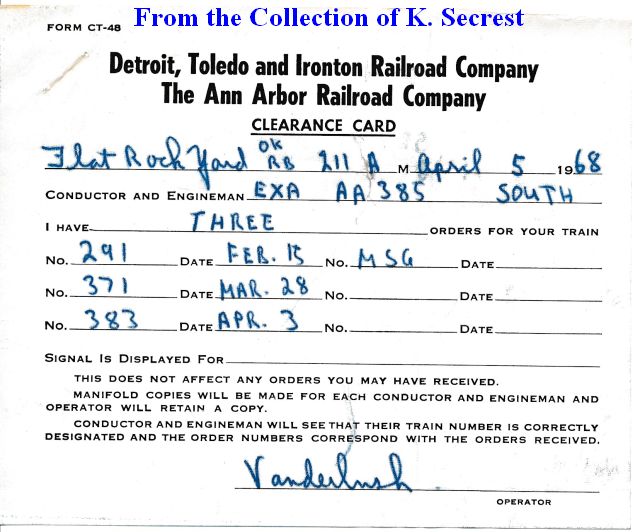 From the Collection of K. Secrest
FORM CT-48
Detroit, Toledo and Ironton Railroad Company
The Ann Arbor Railroad Company
CLEARANCE CARD
Flat Rock Yard OK RB 211 A M April 5 1968
CONDUCTOR AND ENGINEMAN EXA AA 385 SOUTH
I HAVE THREE ORDERS FOR YOUR TRAIN
No. 291 DATE FEB. 15 No. MSG DATE
No. 371 DATE MAR. 28 No. DATE
No. 383 DATE APR. 3 No. DATE
SIGNAL IS DISPLAYED FOR
THIS DOES NOT AFFECT ANY ORDERS YOU MAY HAVE RECEIVED.
MANIFOLD COPIES WILL BE MADE FOR EACH CONDUCTOR AND ENGINEMAN AND
OPERATOR WILL RETAIN A COPY.
CONDUCTOR AND ENGINEMAN WILL SEE THAT THEIR TRAIN NUMBER IS CORRECTLY
DESIGNATED AND THE ORDER NUMBERS CORRESPOND WITH THE ORDERS RECEIVED.
Vanderlush
OPERATOR